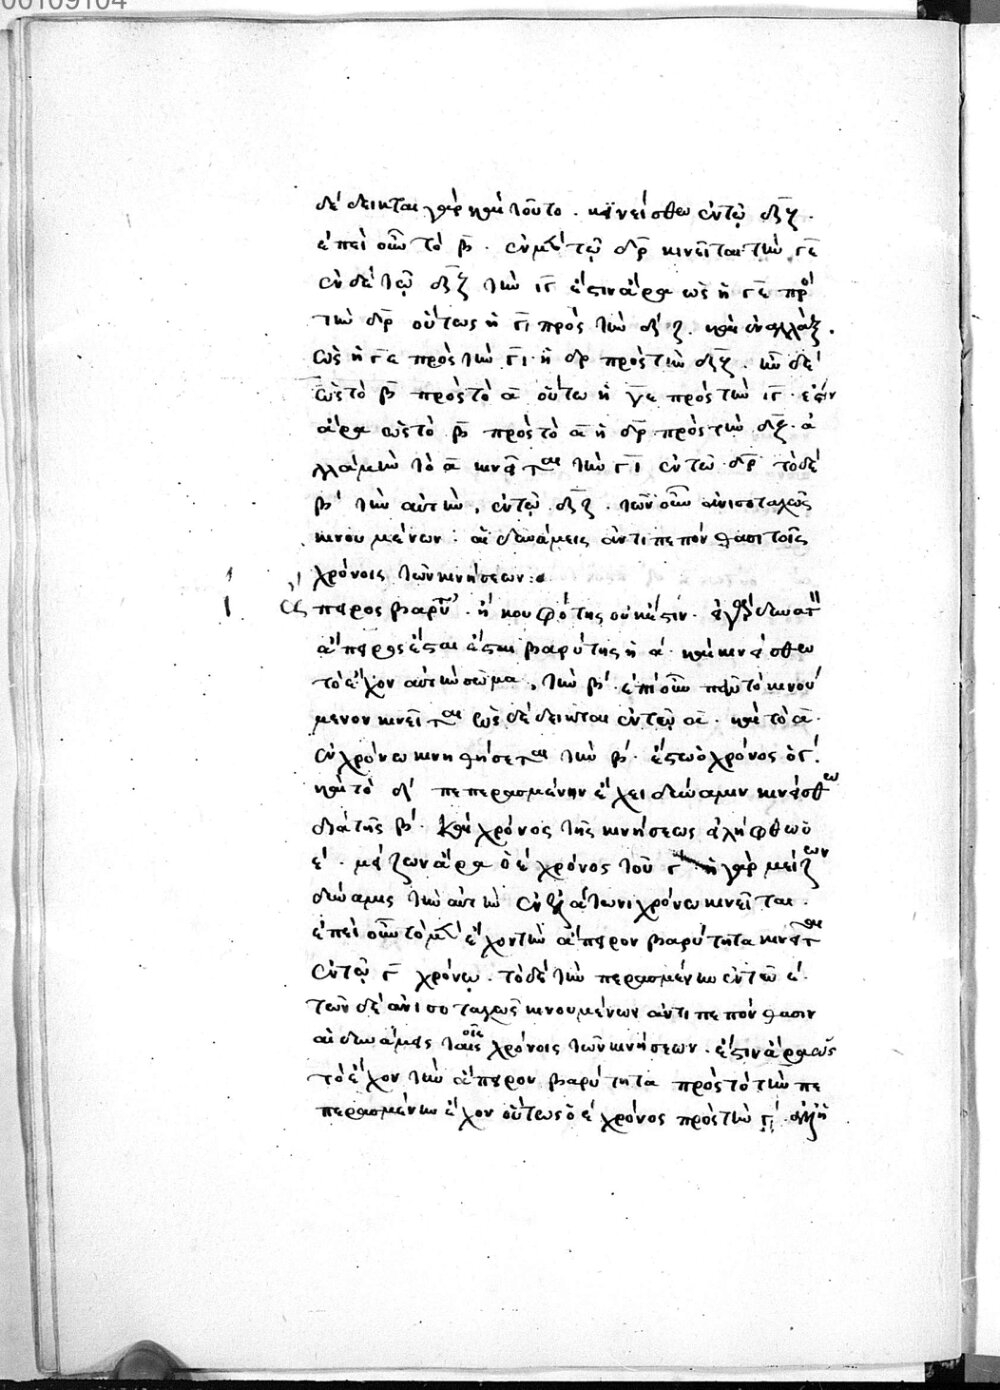 00109104
δέδεικται γὰρ καὶ τοῦτο. κινείσθω ἐν τῷ δζ.
ἐπεὶ οὖν τὸ β. ἐν μὲν τῷ δρ κινεῖται τὴν γε
ἐν δὲ τῷ δζ τὴν ιγ ἔστιν ἄρα ὡς ἡ γε πρὸς
τὴν δρ οὕτως ἡ γι πρὸς τὴν δζ. καὶ ἐναλλὰξ.
ὡς ἡ γε πρὸς τὴν γι. ἡ δρ πρὸς τὴν δζ.
ὡς τὸ β πρὸς τὸ α οὕτω ἡ γε πρὸς τὴν ιγ. ἔστιν
ἄρα ὡς τὸ β πρὸς τὸ α ἡ δρ πρὸς τὴν δζ. ἀ
τὸ α κινεῖται τὴν γι ἐν τῷ δρ τὸ δὲ
β' τὴν αὐτὴν, ἐν τῷ δζ. τῶν οὖν ἀνισοταχῶς
κινουμένων. αἱ δυνάμεις ἀντιπεπόνθασι τοῖς
χρόνοις τῶν κινήσεων:
ἄπειρος βαρύτης. ἢ κουφότης οὐκ ἔστιν. εἰ γὰρ δυνατὴ
ἄπειρος ἔσται ἔσται βαρύτης ἡ α. καὶ κινείσθω
τὸ ἔχον αὐτὴν σῶμα, τὴν β'. ἐπεὶ οὖν πᾶν τὸ κινού
μενον κινεῖται ὡς δέδεικται ἐν τῷ α. καὶ τὸ α.
ἐν χρόνω κινηθήσεται τὴν β'. ἔστω ὁ χρόνος ὁ γ'.
καὶ τὸ δ' πεπερασμένην ἔχει δύναμιν κινείσθω
διὰ τῆς β'. καὶ χρόνος τῆς κινήσεως εἰλήφθω ὁ
ε'. μείζων ἄρα ὁ ε' χρόνος τοῦ γ' ἡ γὰρ μείζων
δύναμις τὴν αὐτὴν ἐν ἐλάττωνι χρόνω κινεῖται.
ἐπεὶ οὖν τὸ μὲν ἔχον τὴν ἄπειρον βαρύτητα κινεῖται
ἐν τῷ γ χρόνῳ. τὸ δὲ τὴν περασμένην ἐν τῶ ε'.
τῶν δὲ ἀνισοταχῶς κινουμένων ἀντιπεπόνθασιν
αἱ δυνάμεις τοῖς χρόνοις τῶν κινήσεων. ἔστιν ἄρα ὡς
τὸ ἔχον τὴν ἄπειρον βαρύτητα πρὸς τὸ τὴν πε
περασμένην ἔχον οὕτως ὁ ε' χρόνος πρὸς τὴν γ'.